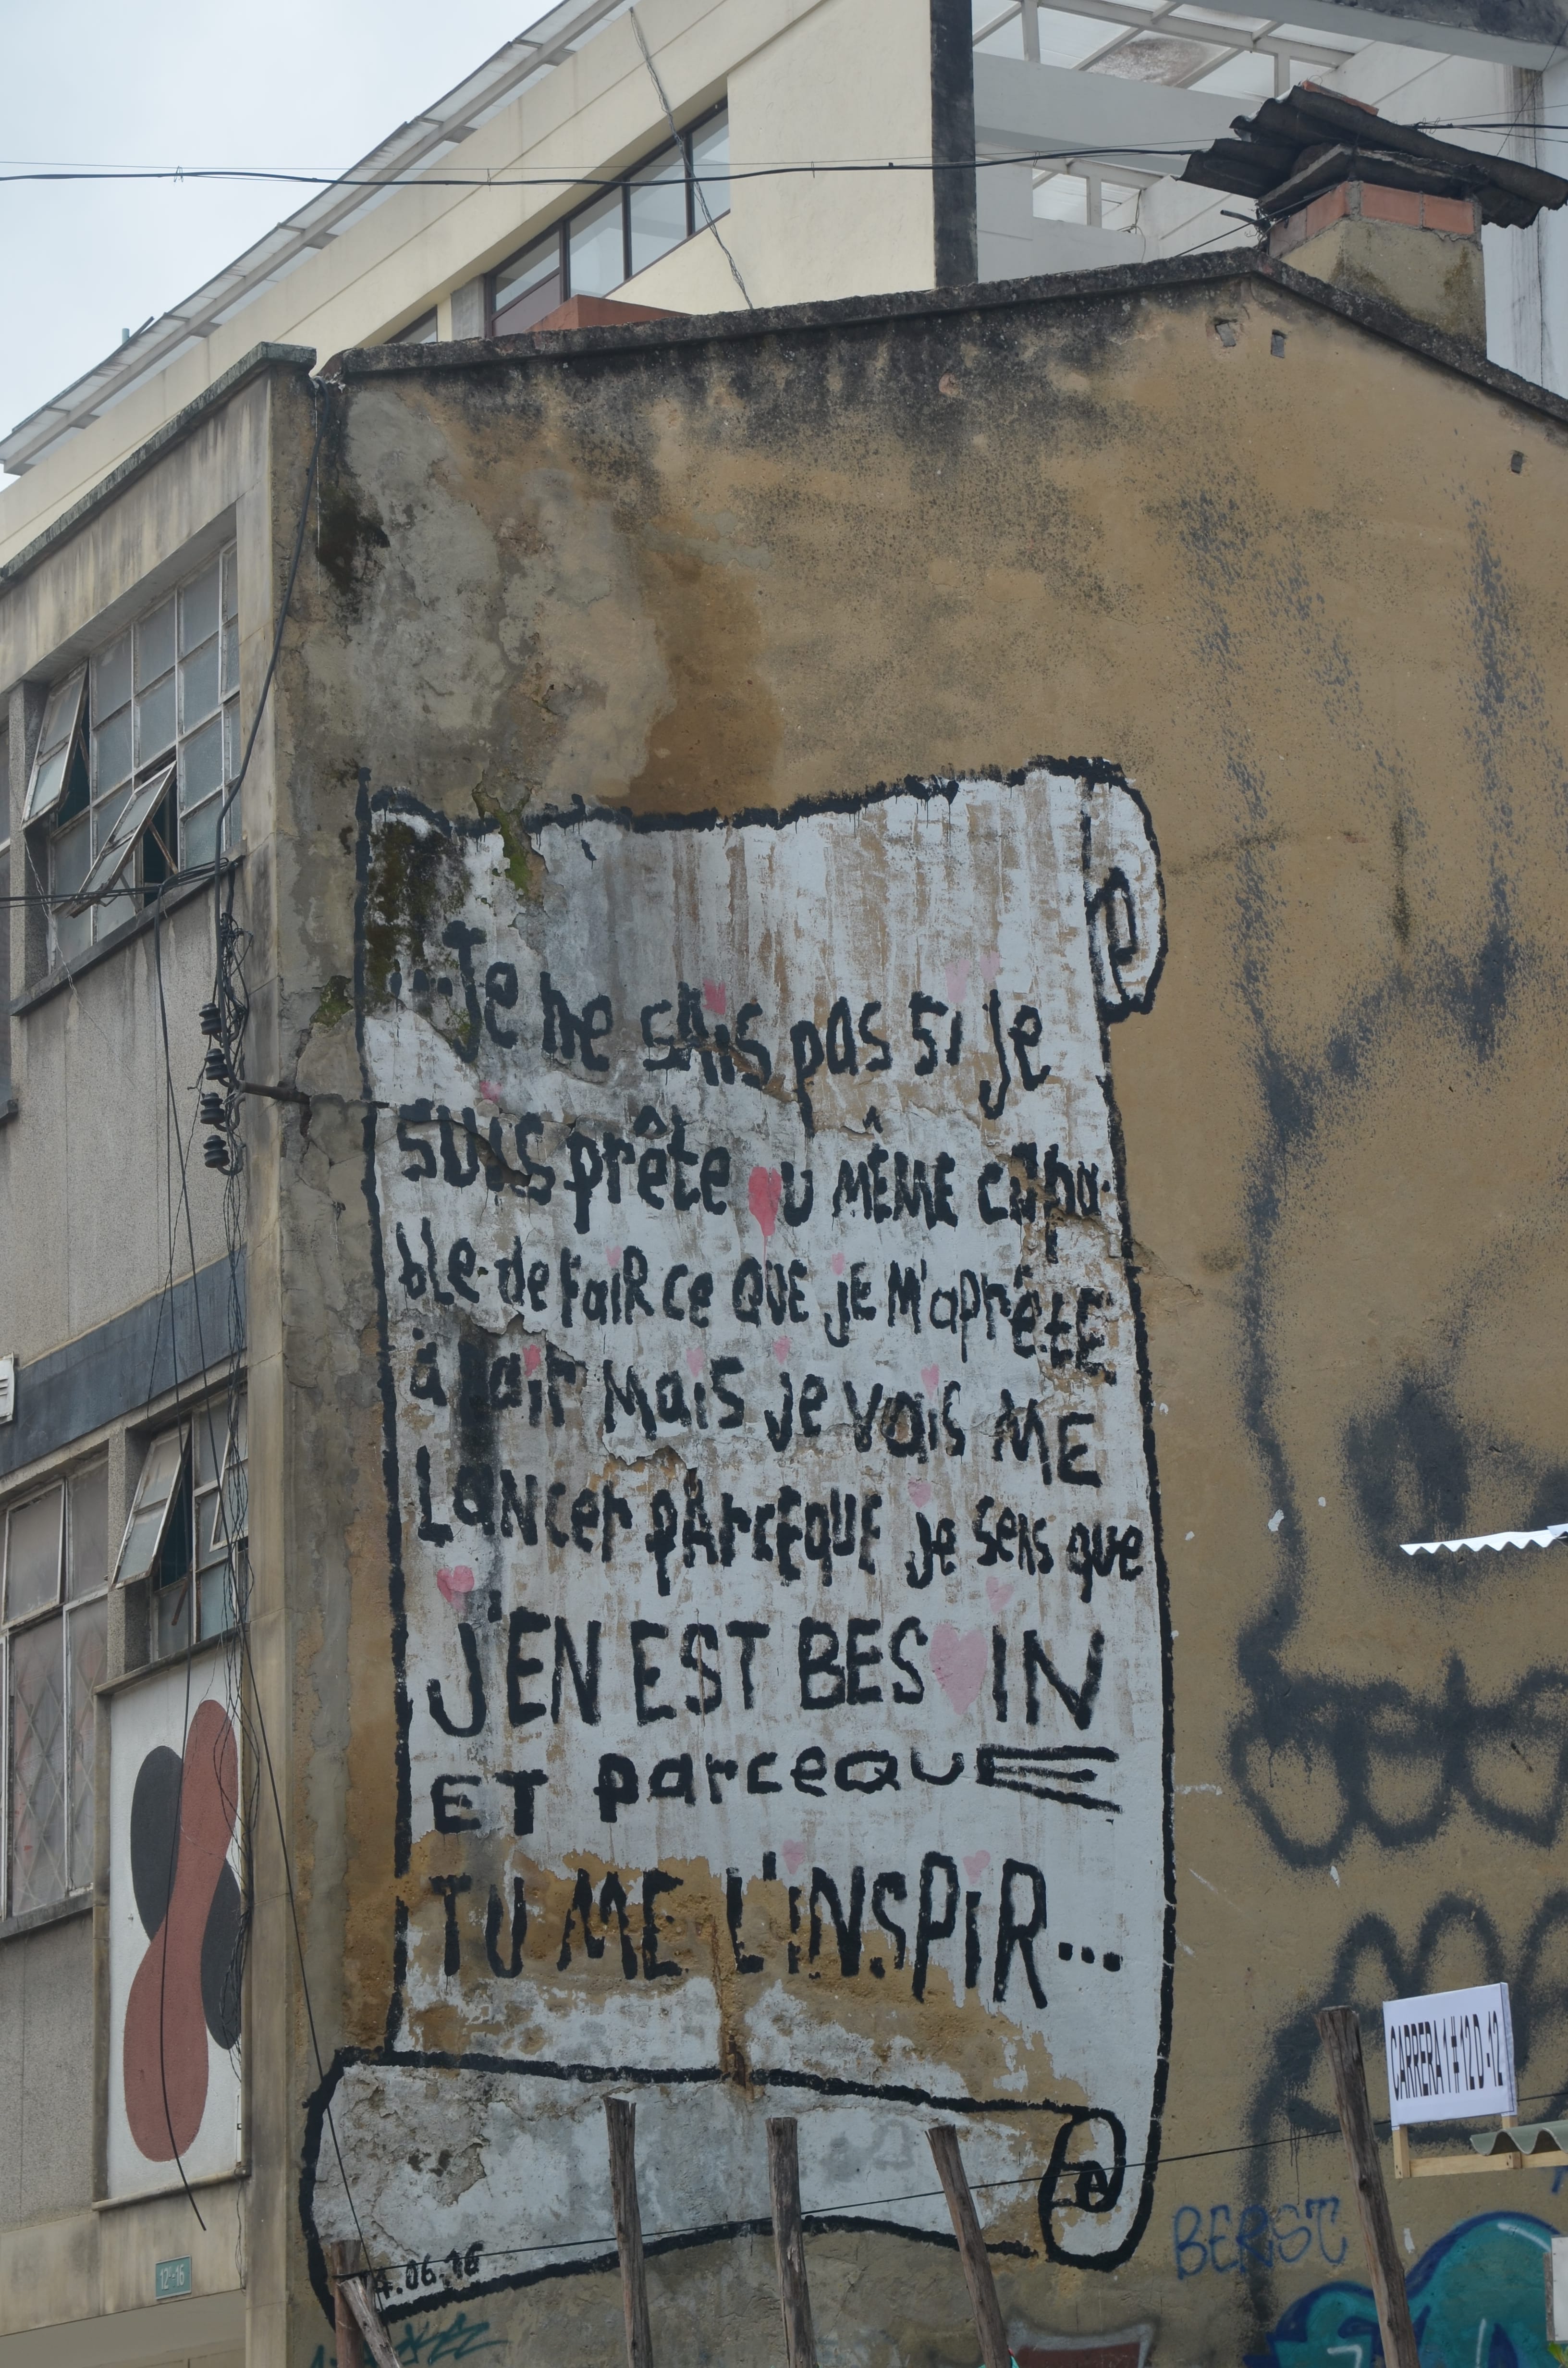 ...Je ne sais pas si je
suis prête ou MÊME capa-
ble de fair ce QUE jE M'aprêtE
à fair Mais je vais ME
LaNcer pArcEqUE je sens que
J'EN EST BESOIN
ET parceQuE
TU ME L'iNSPiR...
.06.16
CARRERA 1 # 12 D -12
12-16
BERST